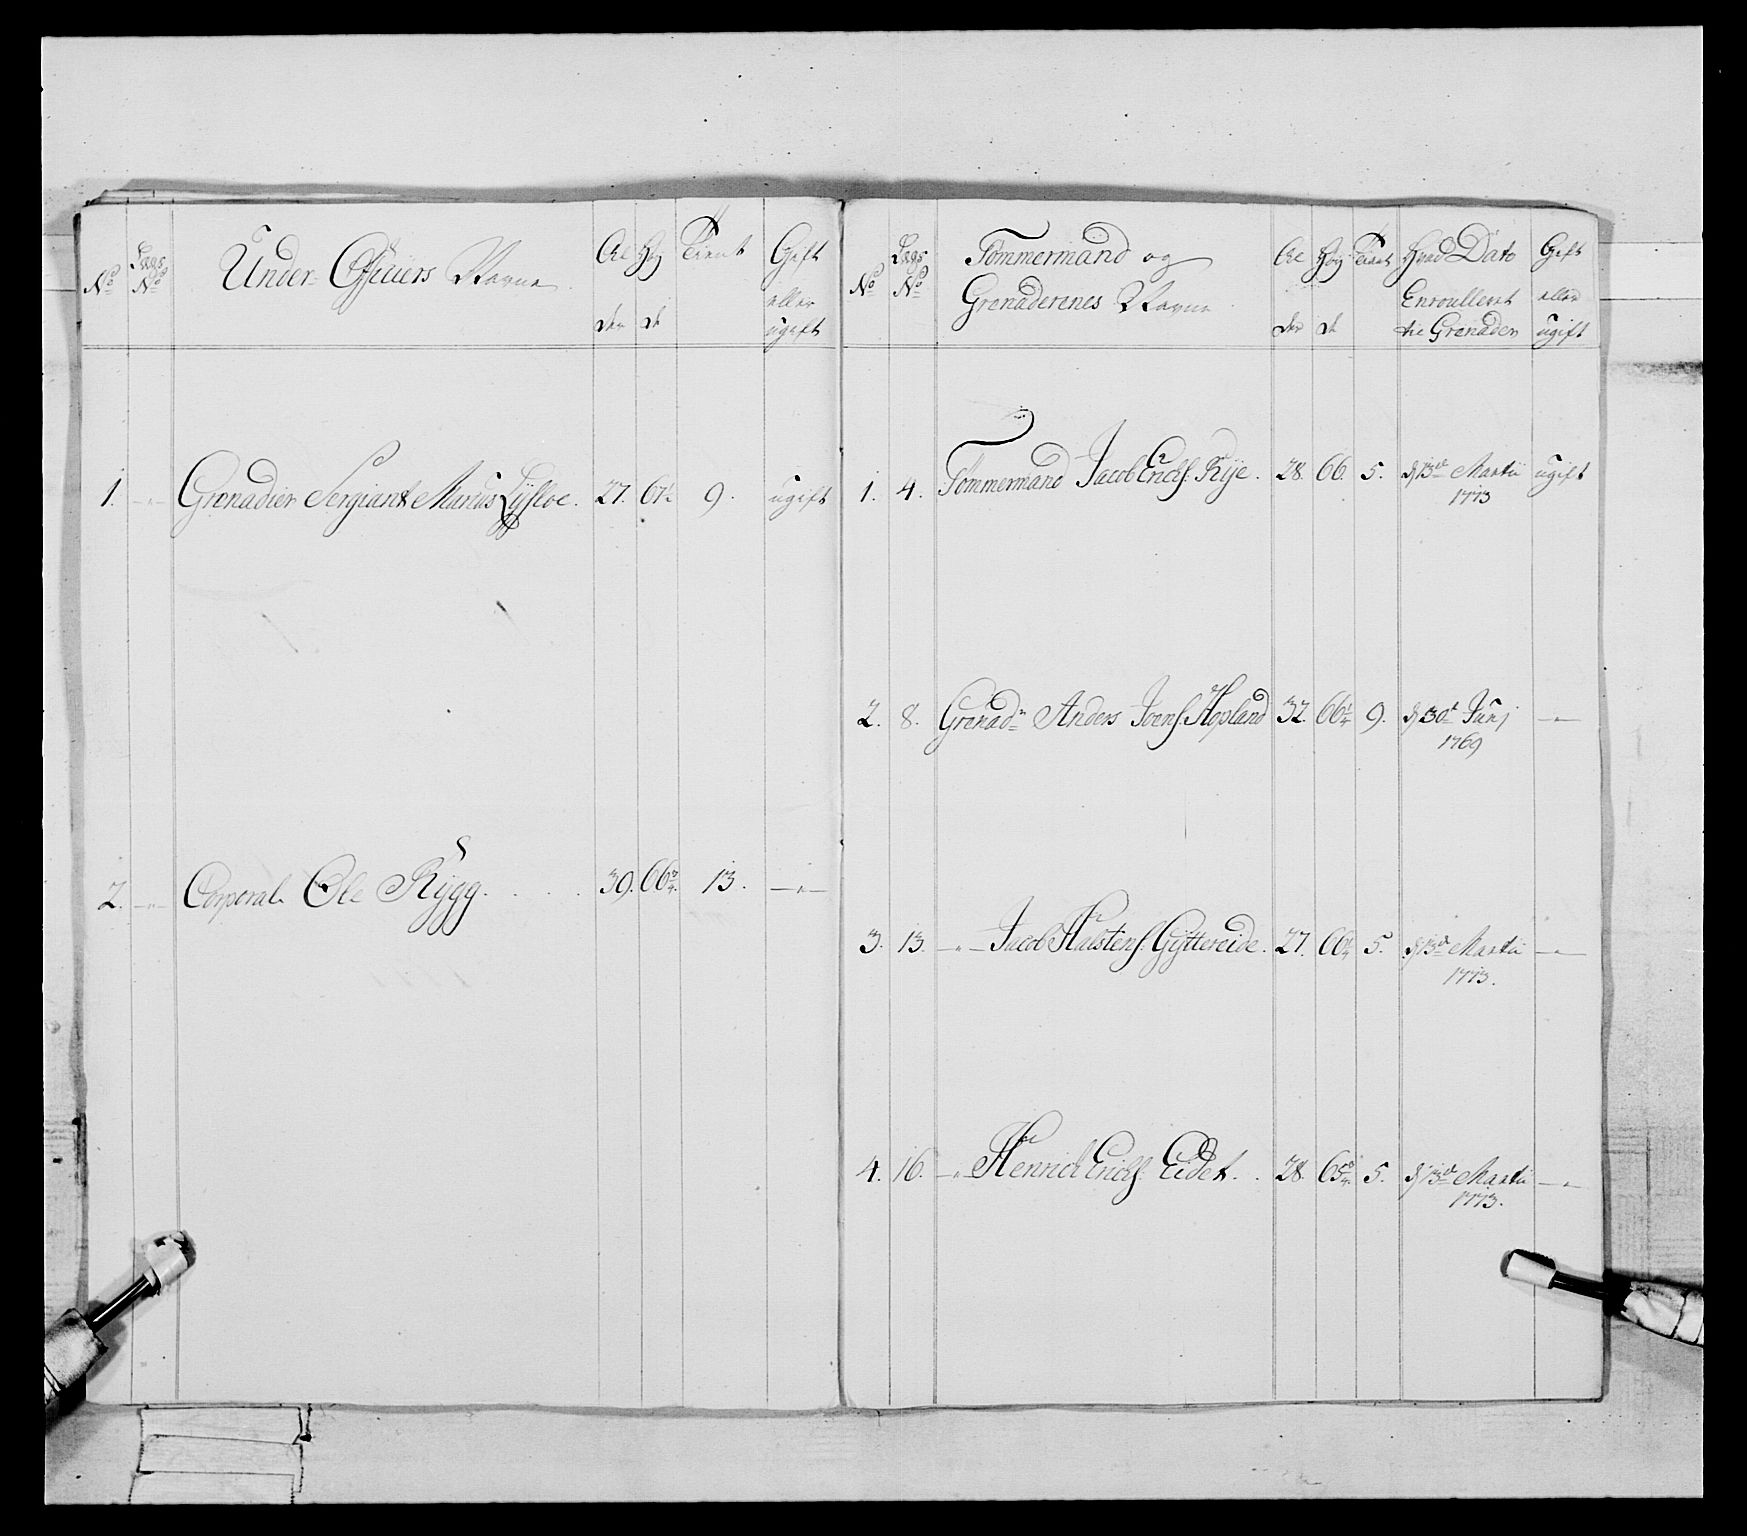 No
Lægs No
Under-Officiers Navne
Al der
Høy de
Tient
Gift eller ugift
1. -"- Grenadier Sergiant Marcus Lysloe. 27. 67¼ 9. ugift
2. -"- Corporal Ole Rygg. . . . 39. 66¾. 13. -"-
No
Lægs No
Tømmermand og Grenaderenes Navne
Al der
Høy de
Tient
Hvad Dato Enroulleret til Grenader
Gift eller ugift
1. 4. Tømmermand Jacob Erichs. Rye. 28. 66. 5. d 13de Martii ugift
1773
2. 8. Grenadr Anders Joens. Hopland 32. 66¼ 9. d 30t Junj -"-
1769
3. 13. -"- Jacob Halstens. Gÿttereide. 27. 66¼ 5. d 13de Martii -"-
1773.
4. 16. -"- Henrich Erichs. Eidet. . 28. 65¾. 5. d 13de Martii -"-
1773.